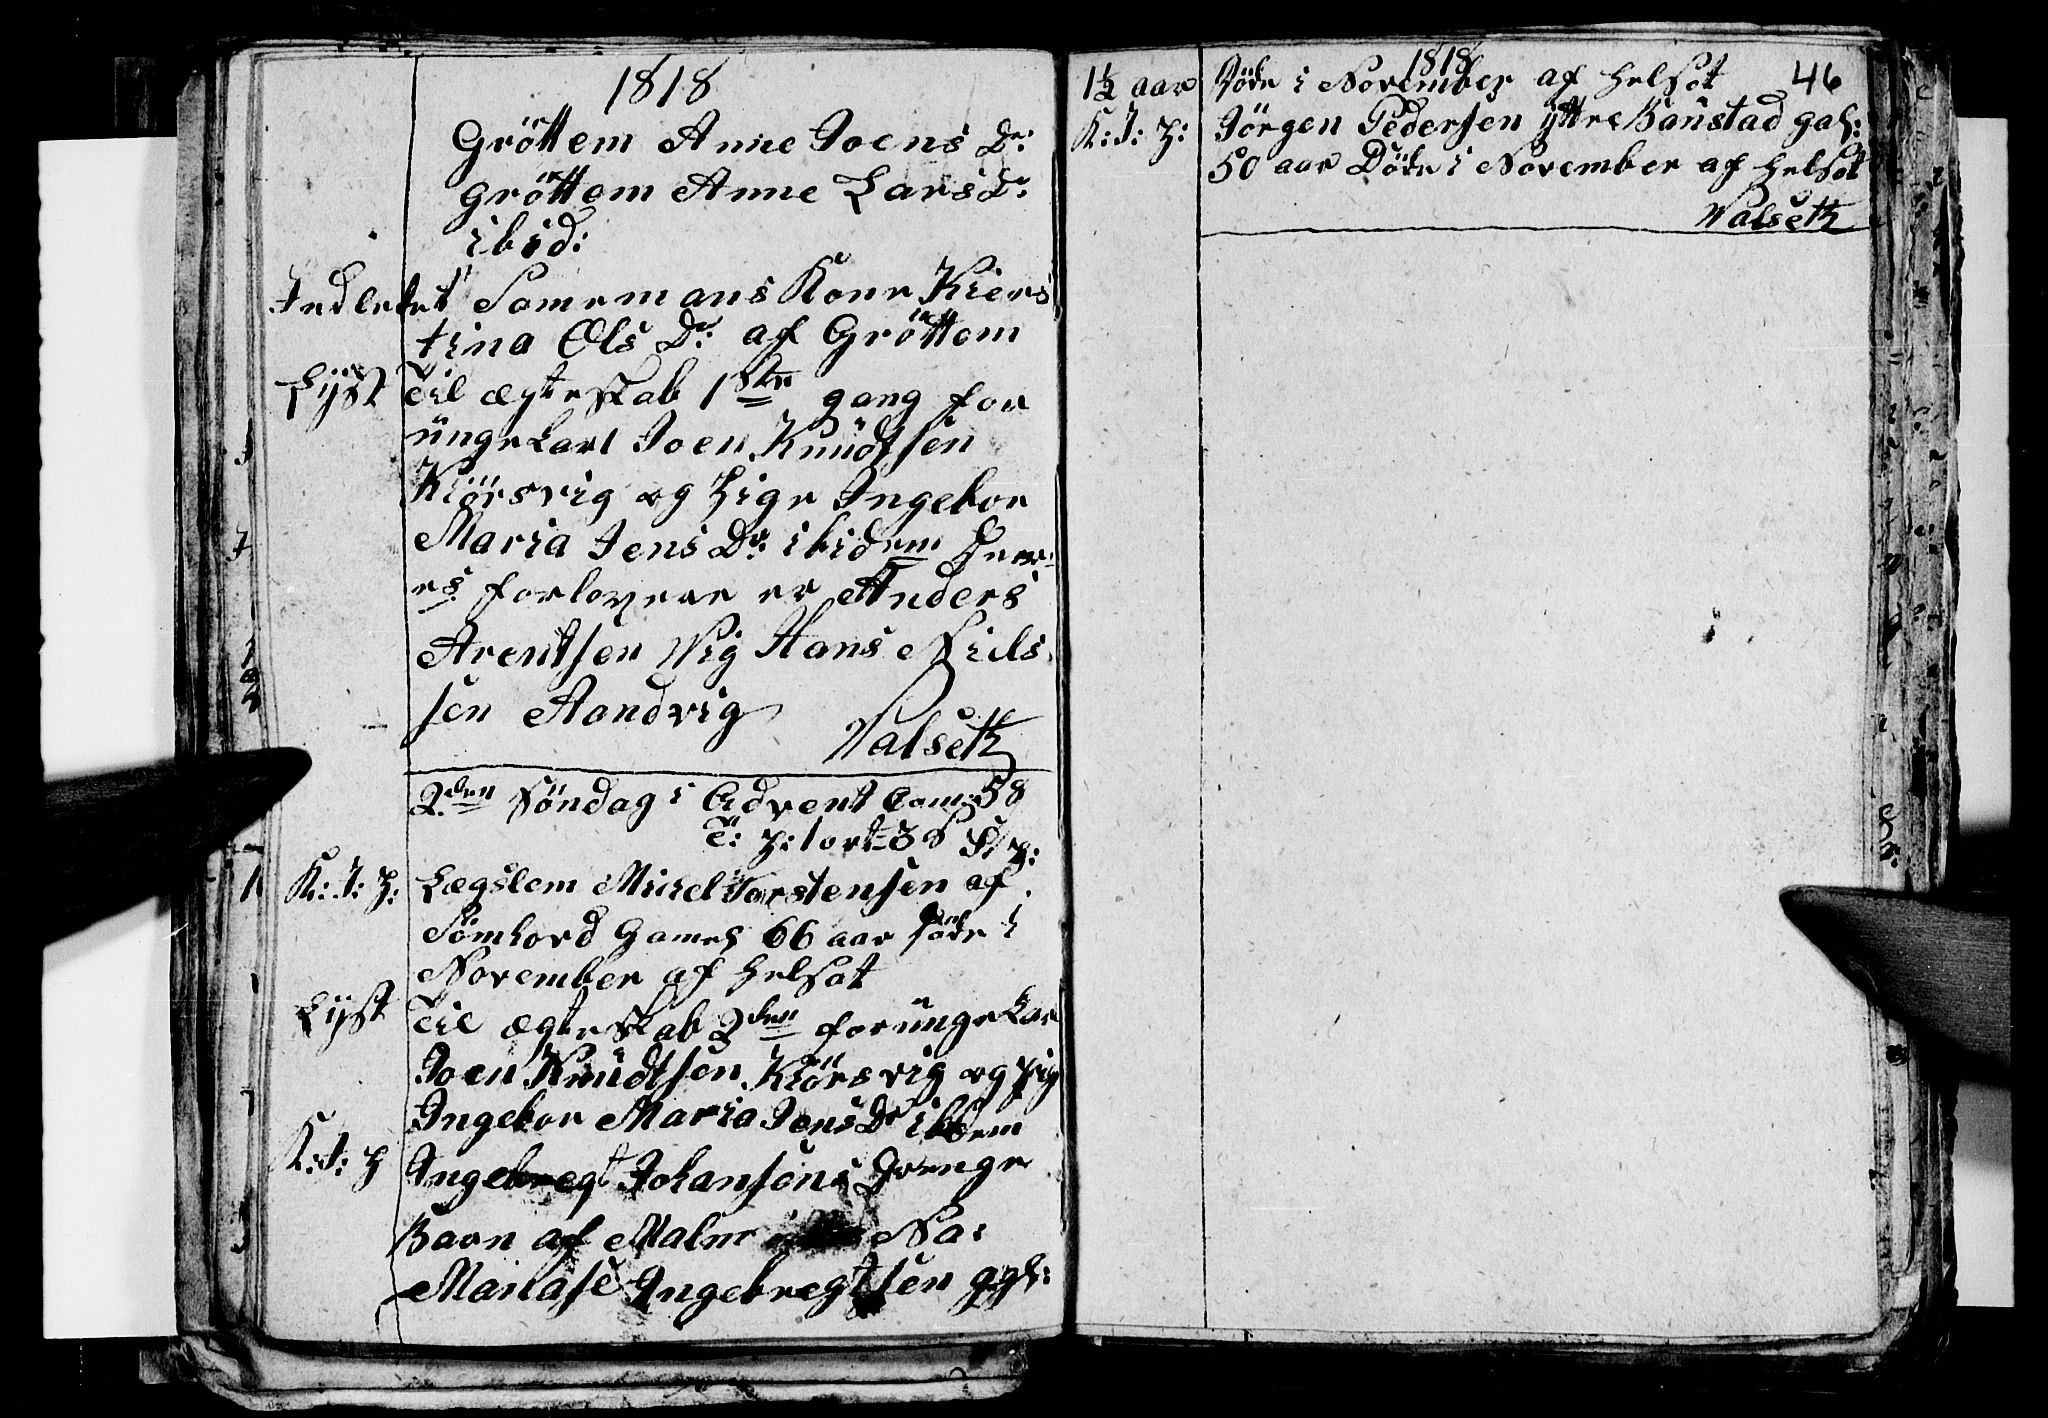 1818
Gröttem Anne Joens Dr:
Gröttem Anne Lars Dr:
ibid:
Indledet Somemans Kone Kiers
tina Ols Dr: af Gröttem
Lÿst Til ægteskab 1ste gang for
ungekarl Joen Knudtsen
Kiörsvig og Pige Ingebor
Maria Jens Dr: ibidem Heres
forlovere er Anders
Arentsen Wig Hans Niels
sen Aandvig
Valseth
2den Söndag i Advent Com: 58
K: J: P: Lægslem Mikel Torstensen af
Sömhovd Gamel 66 aar Döde i
November af helsot
Lÿst Til ægteskab 2den for ungekar
Joen Knudtsen Kiörsvig og Pig
Ingebor Maria Jens Dr ibidem
K: J: P Ingebregt Johansens Drenge
Barn af Malm Na:
Manase Ingebregtsen gal:
1818
46
1½ aar Döde i November af helsot
K: J: P: Jörgen Pedersen Ÿttre Banstad gal:
50 aar Döde i November af helsot
Valseth